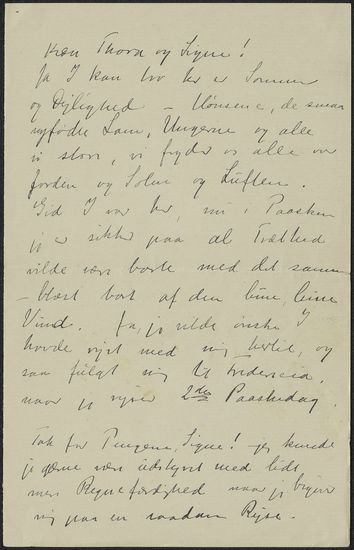 Kære Thora og Signe!
Ja I kan tro her er Sommer
og Dejlighed – Hønsene, de smaa
nyfødte Lam, Ungerne og alle
vi store, vi fryder os alle over
Jorden og Solen og Luften.
Gid I var her, nu i Paasken
jeg er sikker paa al Træthed
vilde være borte med det samme
– blæst bort af den lune, lune
Vind. Ja, jeg vilde ønske I
havde rejst med mig hertil, og
saa fulgt mig til Fredericia,
naar jeg rejser 2den Paaskedag.
Tak for Pengene, Signe! – jeg kunde
jo gærne være udstyret med lidt
mere Regnefærdighed naar jeg begiver
mig paa en saadan Rejse.